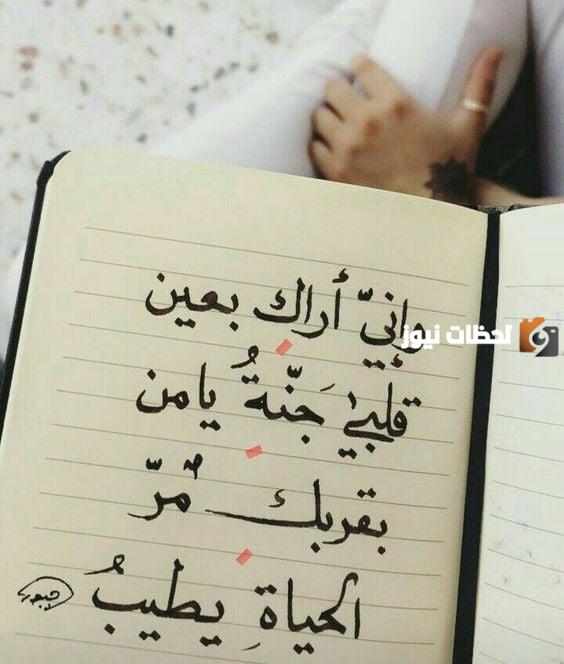 وإنيّ أراك بعين
لحظات نيوز
قلبيٰ جَنّةُ يامن
بقربك مُرّ
الحياةِ يطيبُ